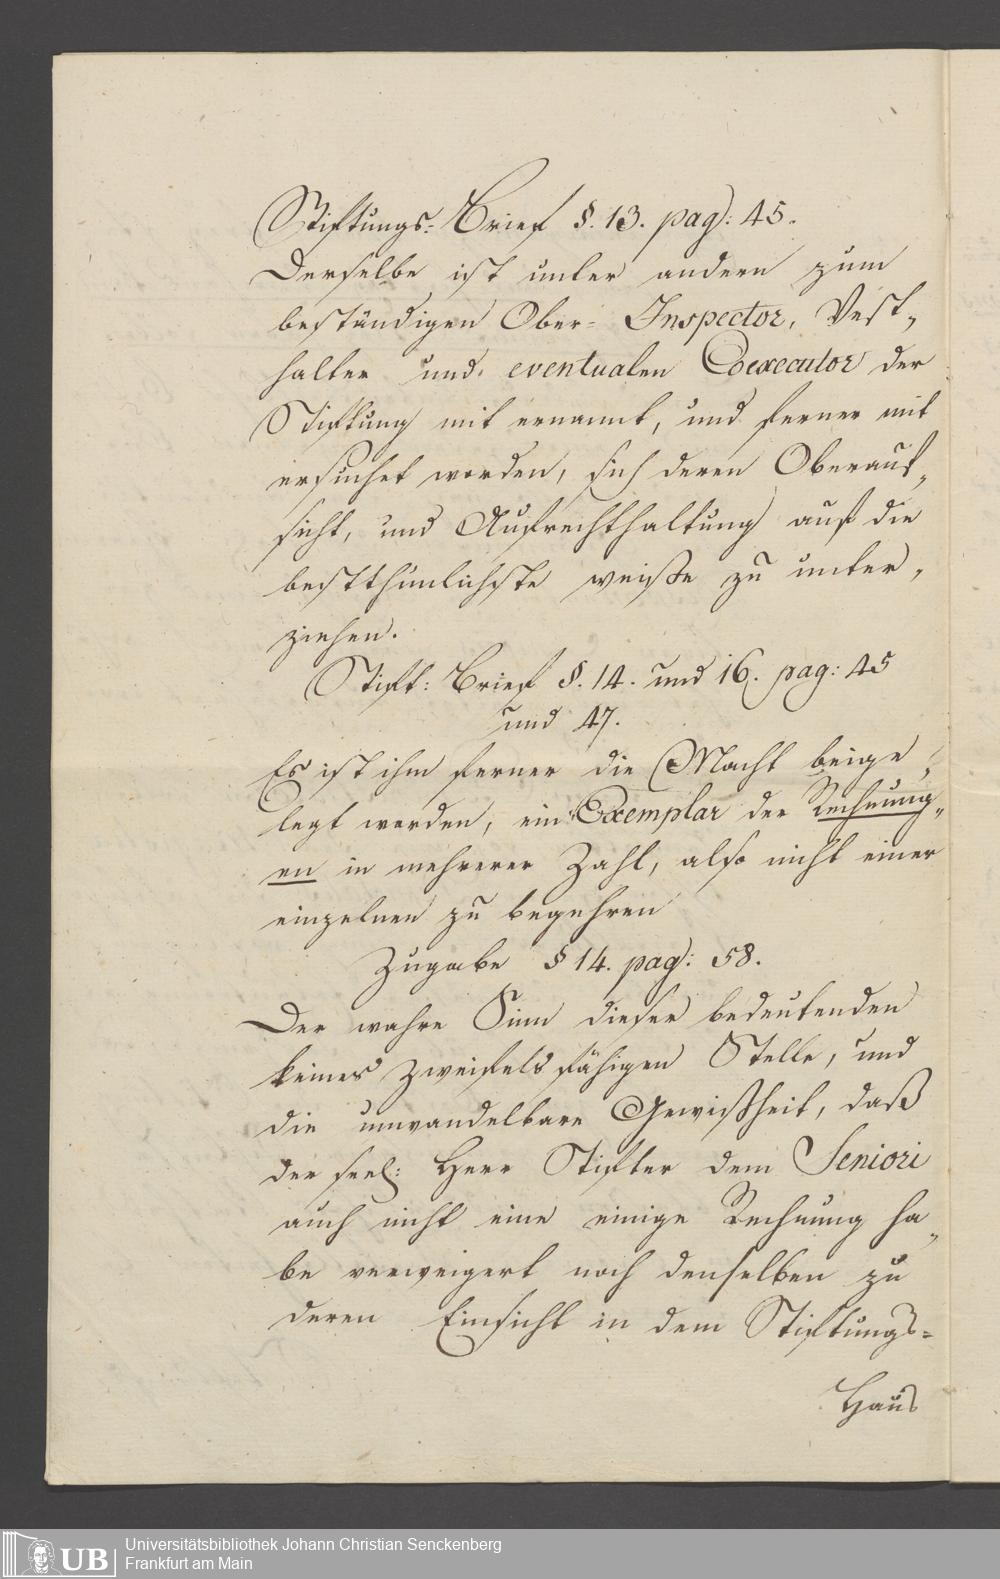 Stiftungs-Brief §. 13. pag: 45.
Derselbe ist unter andern zum
beständigen Ober- Inspector, Vest-
halter und eventualen Coexecutor der
Stiftung mit ernannt, und ferner mit
ersuchet worden, sich deren Oberauf-
sicht, und Aufrechthaltung auf die
bestthunlichste weiße zu unter-
ziehen.
Stift: Brief §. 14. und 16. pag: 45
und 47.
Es ist ihm ferner die Macht beige-
legt worden, ein Exemplar der Rechnung-
en in mehrerer Zahl, also nicht einer
einzelnen zu begehren
Zugabe § 14. pag: 58.
Der wahre Sinn dieser bedeutenden
keines Zweifels fähigen Stelle, und
die unwandelbare Gewißheit, daß
der seel: Herr Stifter dem Seniori
auch nicht eine einige Rechnung ha-
be verweigert noch denselben zu
deren Einsicht in dem Stiftungs-
Haus
UB
Universitätsbibliothek Johann Christian Senckenberg
Frankfurt am Main